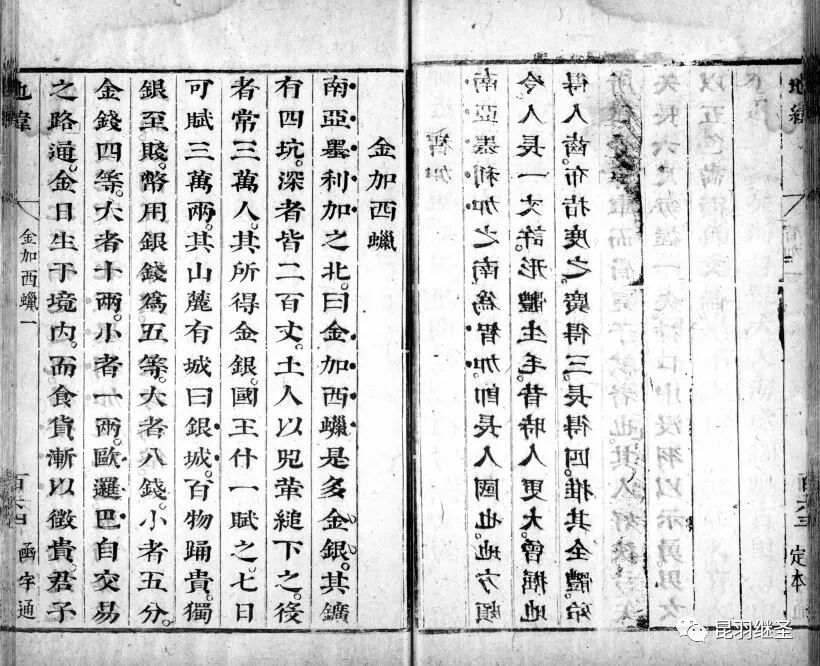 智加
南亞墨利加之南爲智加。即長人國也。地方頗
冷。人長一丈許。形體生毛。昔時人更大。曾掘地
得人齒。布指度之。廣得三。長得四。推其全體殆
矢長六尺 握一矢 口中沒羽以示勇男女
以五色
地緯
定本
金加西蠟
南亞墨利加之北。曰金加西蠟。是多金銀。其鑛
有四坑。深者皆二百丈。土人以兕革縋下之。役
者常三萬人。其所得金銀。國王什一賦之。七日
可賦三萬兩。其山麓有城曰銀城。百物踊貴。獨
銀至賤。幣用銀錢爲五等。大者八錢。小者五分。
金錢四等。大者十兩。小者一兩。歐邏巴自交易
之路通。金日生于境内。而食貨漸以徵貴。君子
地緯 金加西蠟一 百六十四 函宇通
昆羽继圣